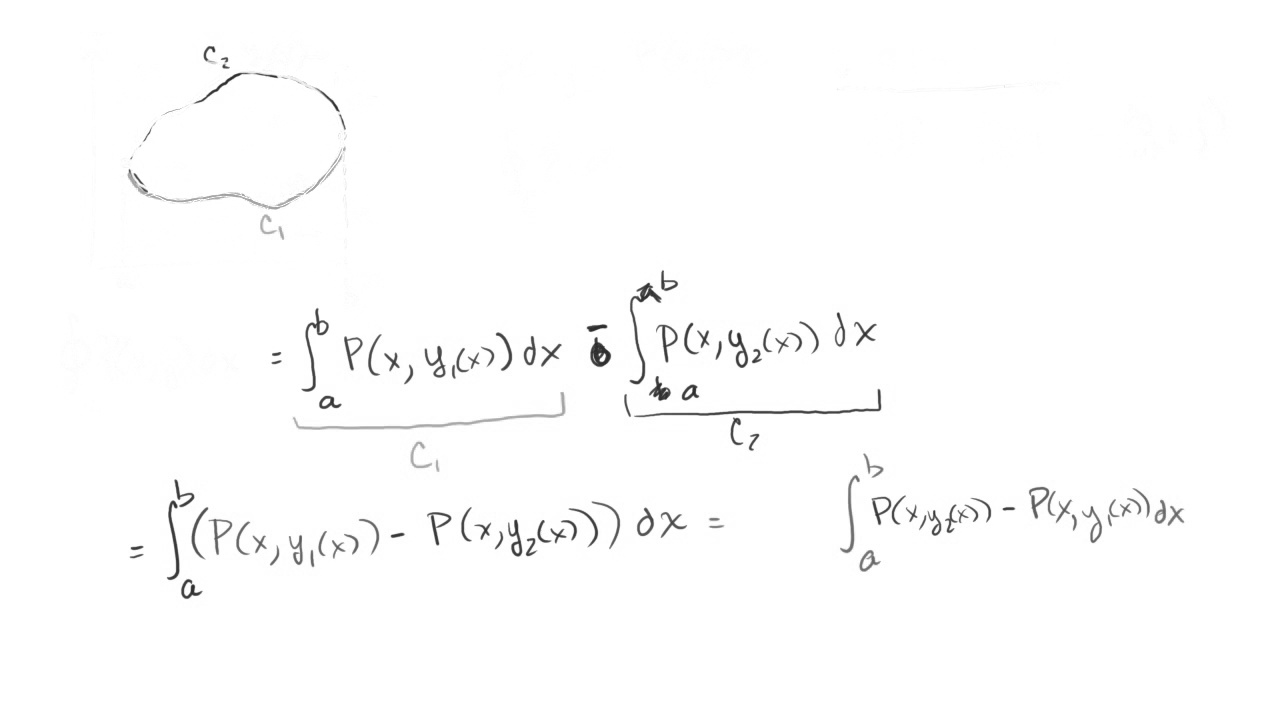 C₂
C₁
= ∫ₐᵇ P(x, y₁(x)) dx - ∫ₐᵇ P(x, y₂(x)) dx
C₁ C₂
= ∫ₐᵇ (P(x, y₁(x)) - P(x, y₂(x))) dx = ∫ₐᵇ P(x, y₂(x)) - P(x, y₁(x)) dx